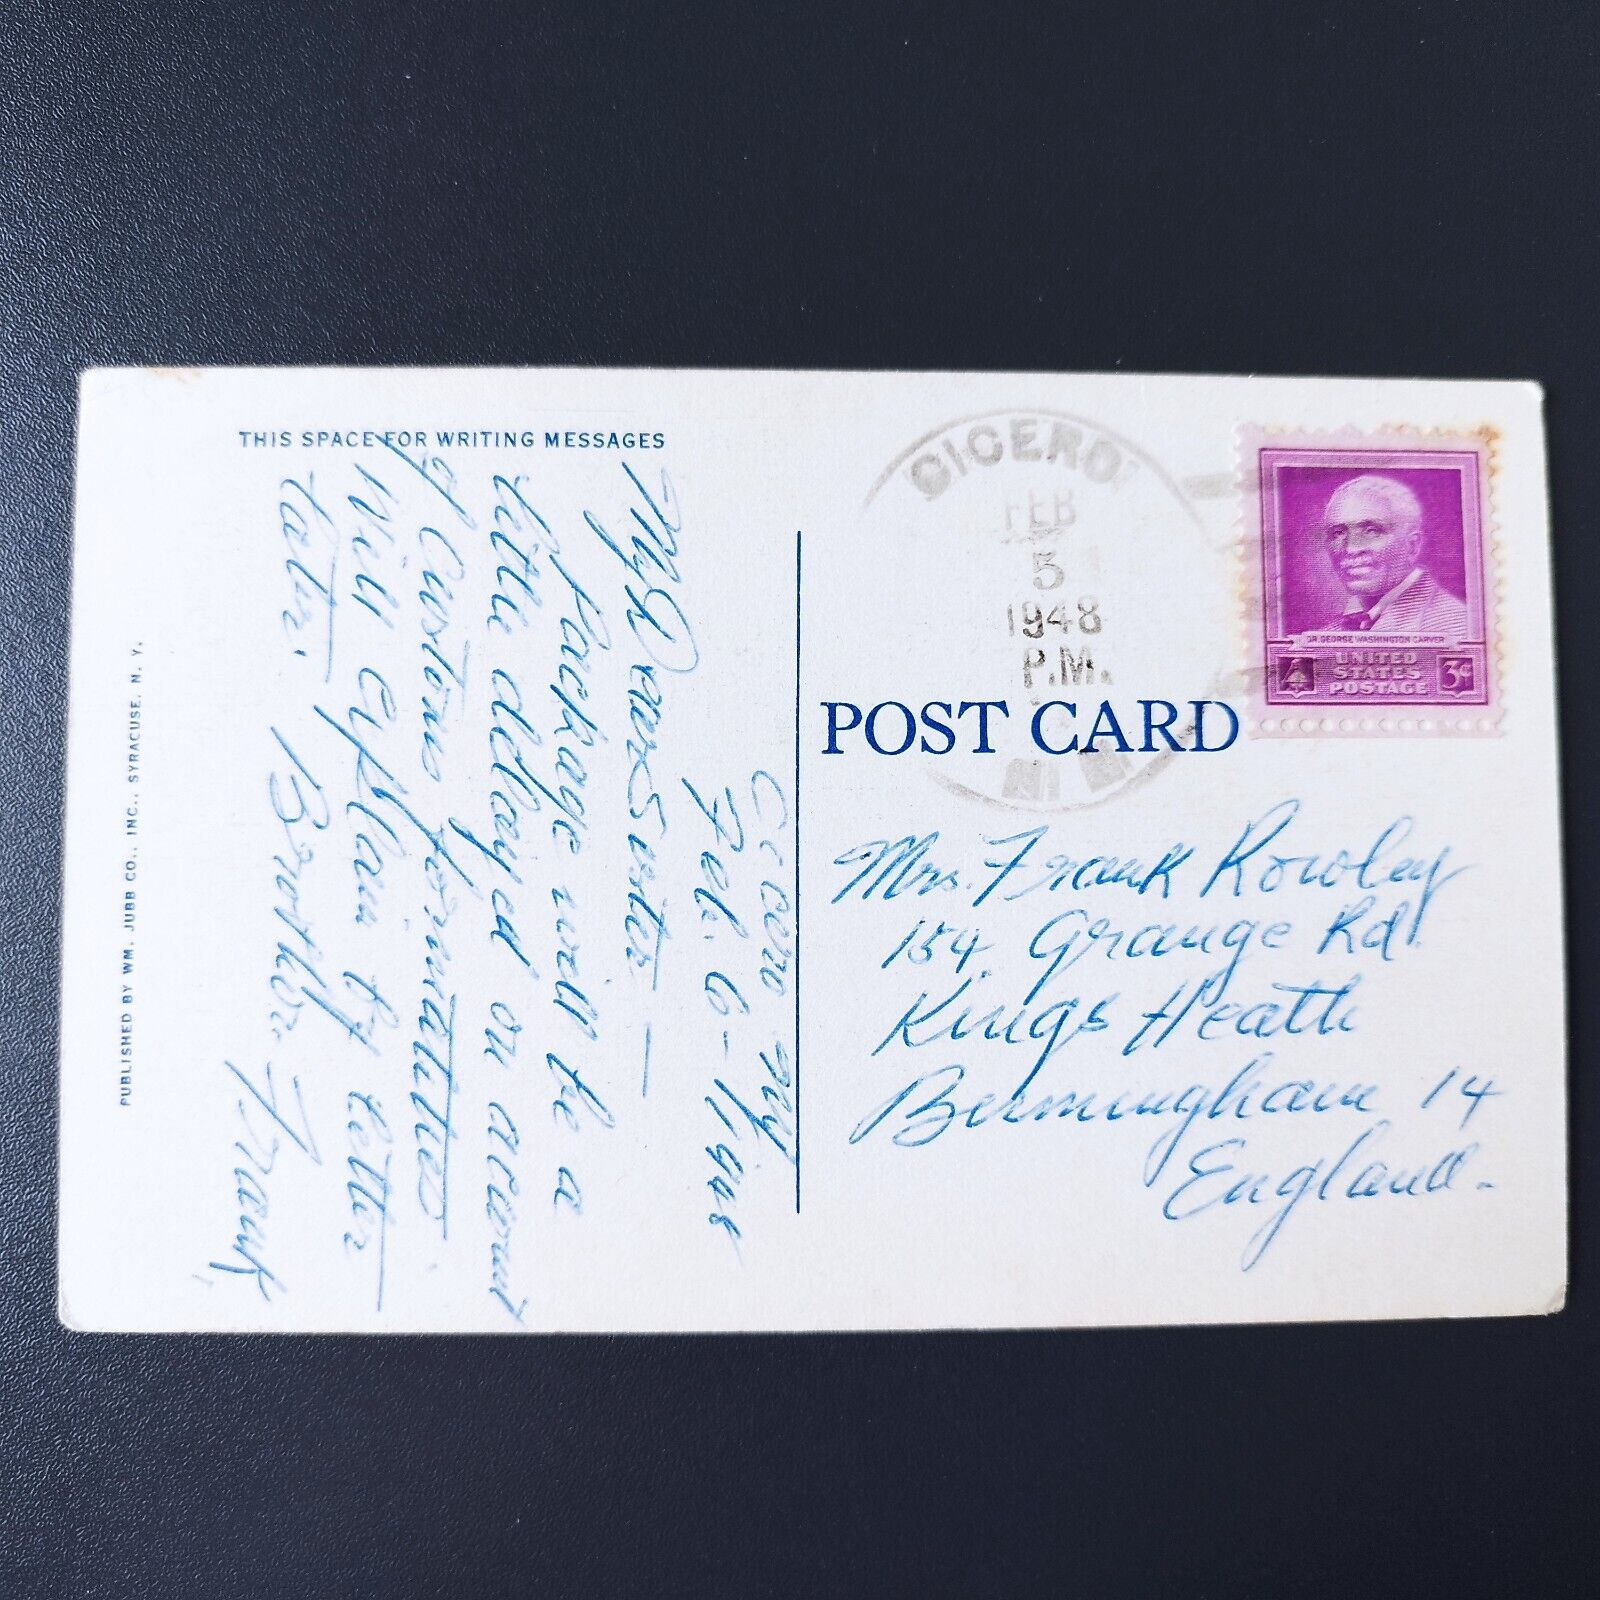 THIS SPACE FOR WRITING MESSAGES
Cicero NY
Feb. 6 - 1948
My Dear Sister -
Package will be a
little delayed on account
of Customs formalities.
Will explain by letter
later.
Brother Frank,
PUBLISHED BY WM. JUBB CO., INC., SYRACUSE, N. Y.
CICERO
FEB
5
1948
P.M.
N.Y.
DR. GEORGE WASHINGTON CARVER
UNITED
STATES
POSTAGE
3¢
POST CARD
Mrs. Frank Rowley
154 Grange Rd.
Kings Heath
Birmingham 14
England.